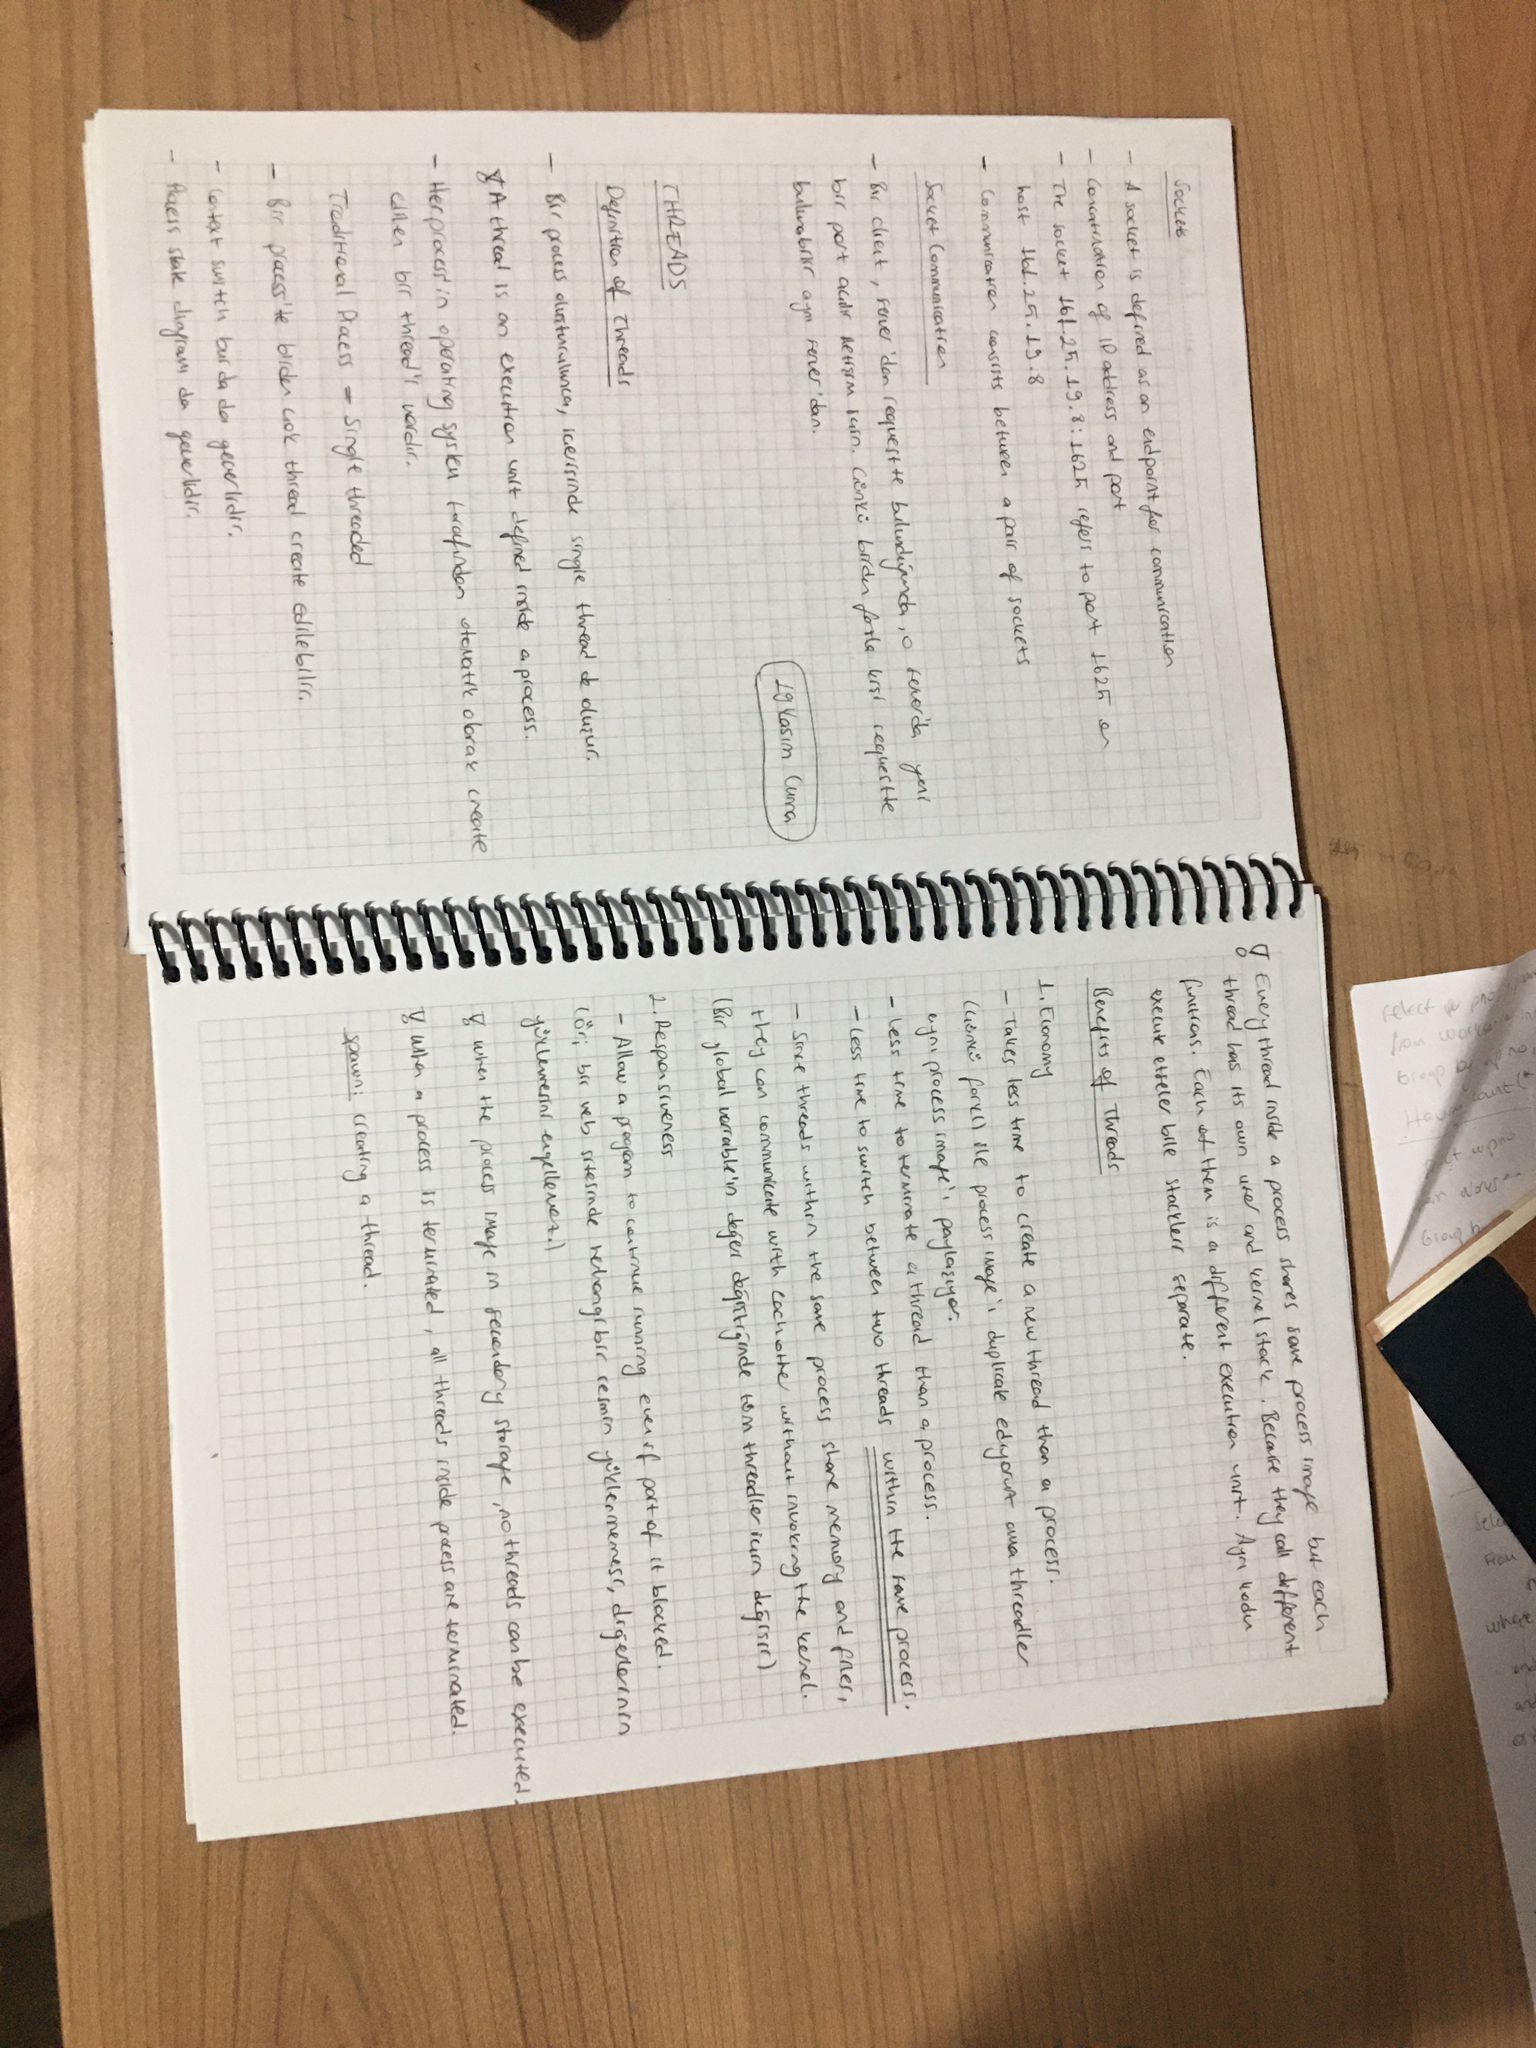 Sockets
- A socket is defined as an endpoint for communication
- Concatenation of IP address and port
- The socket 161.25.19.8:1625 refers to port 1625 on
host 161.25.19.8
- Communication consists between a pair of sockets
Socket Communication
- Bir client, server'dan requestte bulunduğunda, o server'da yeni
bir port açılır iletişim için. Çünkü birden fazla kişi requestte
bulunabilir aynı server'dan.
19 Kasım Cuma
THREADS
Definition of Threads
- Bir process oluşturulunca, içerisinde single thread de oluşur.
A thread is an execution unit defined inside a process.
- Her process'in operating system tarafından otomatik olarak create
edilen bir thread'i vardır.
Traditional Process = Single threaded
- Bir process'te birden çok thread create edilebilir.
- Context switch burda da geçerlidir.
- Process state diagram da geçerlidir.
Every thread inside a process shares same process image but each
thread has its own user and kernel stack. Because they call different
functions. Each of them is a different execution unit. Aynı kodu
execute etseler bile stackleri separate.
Benefits of Threads
1. Economy
- Takes less time to create a new thread than a process.
(Çünkü fork() ile process image'i duplicate ediyoruz ama threadler
aynı process image'i paylaşıyor.
- Less time to terminate a thread than a process.
- Less time to switch between two threads within the same process.
- Since threads within the same process share memory and files,
they can communicate with each other without invoking the kernel.
(Bir global variable'ın değeri değiştiğinde tüm threadler için değişir)
2. Responsiveness
- Allow a program to continue running even if part of it blocked.
(Ör; bir web sitesinde herhangi bir resmin yüklenmemesi, diğerlerinin
yüklenmesini engellemez.)
When the process image in secondary storage, no threads can be executed.
When a process is terminated, all threads inside process are terminated.
spawn: creating a thread.
select
from
Group by
Group b
where